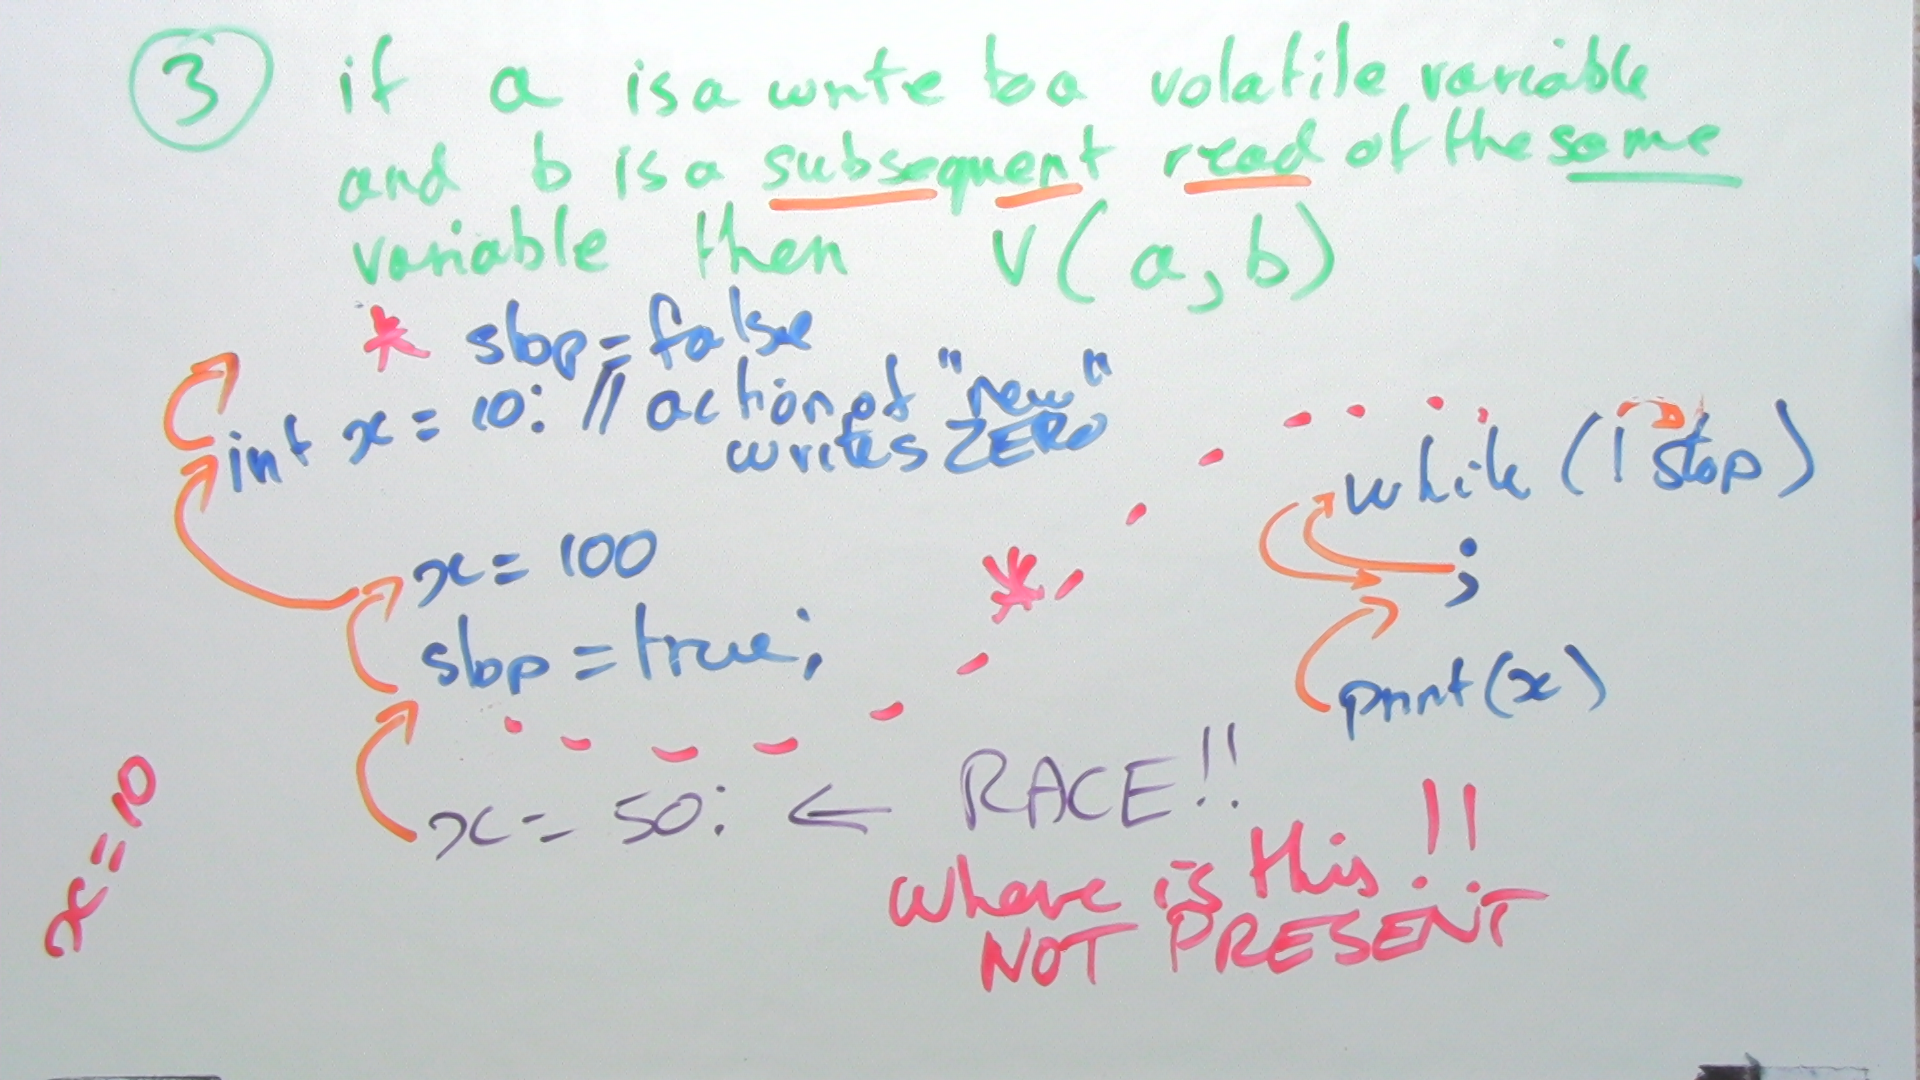 3 if a is a write to a volatile variable
and b is a subsequent read of the same
variable then V(a,b)
* stop = false
int x = 10; // action of "new"
writes ZERO
while (! stop)
;
print(x)
x = 100
*
stop = true;
x = 50; ← RACE!!
where is this !!
NOT PRESENT
x = 10